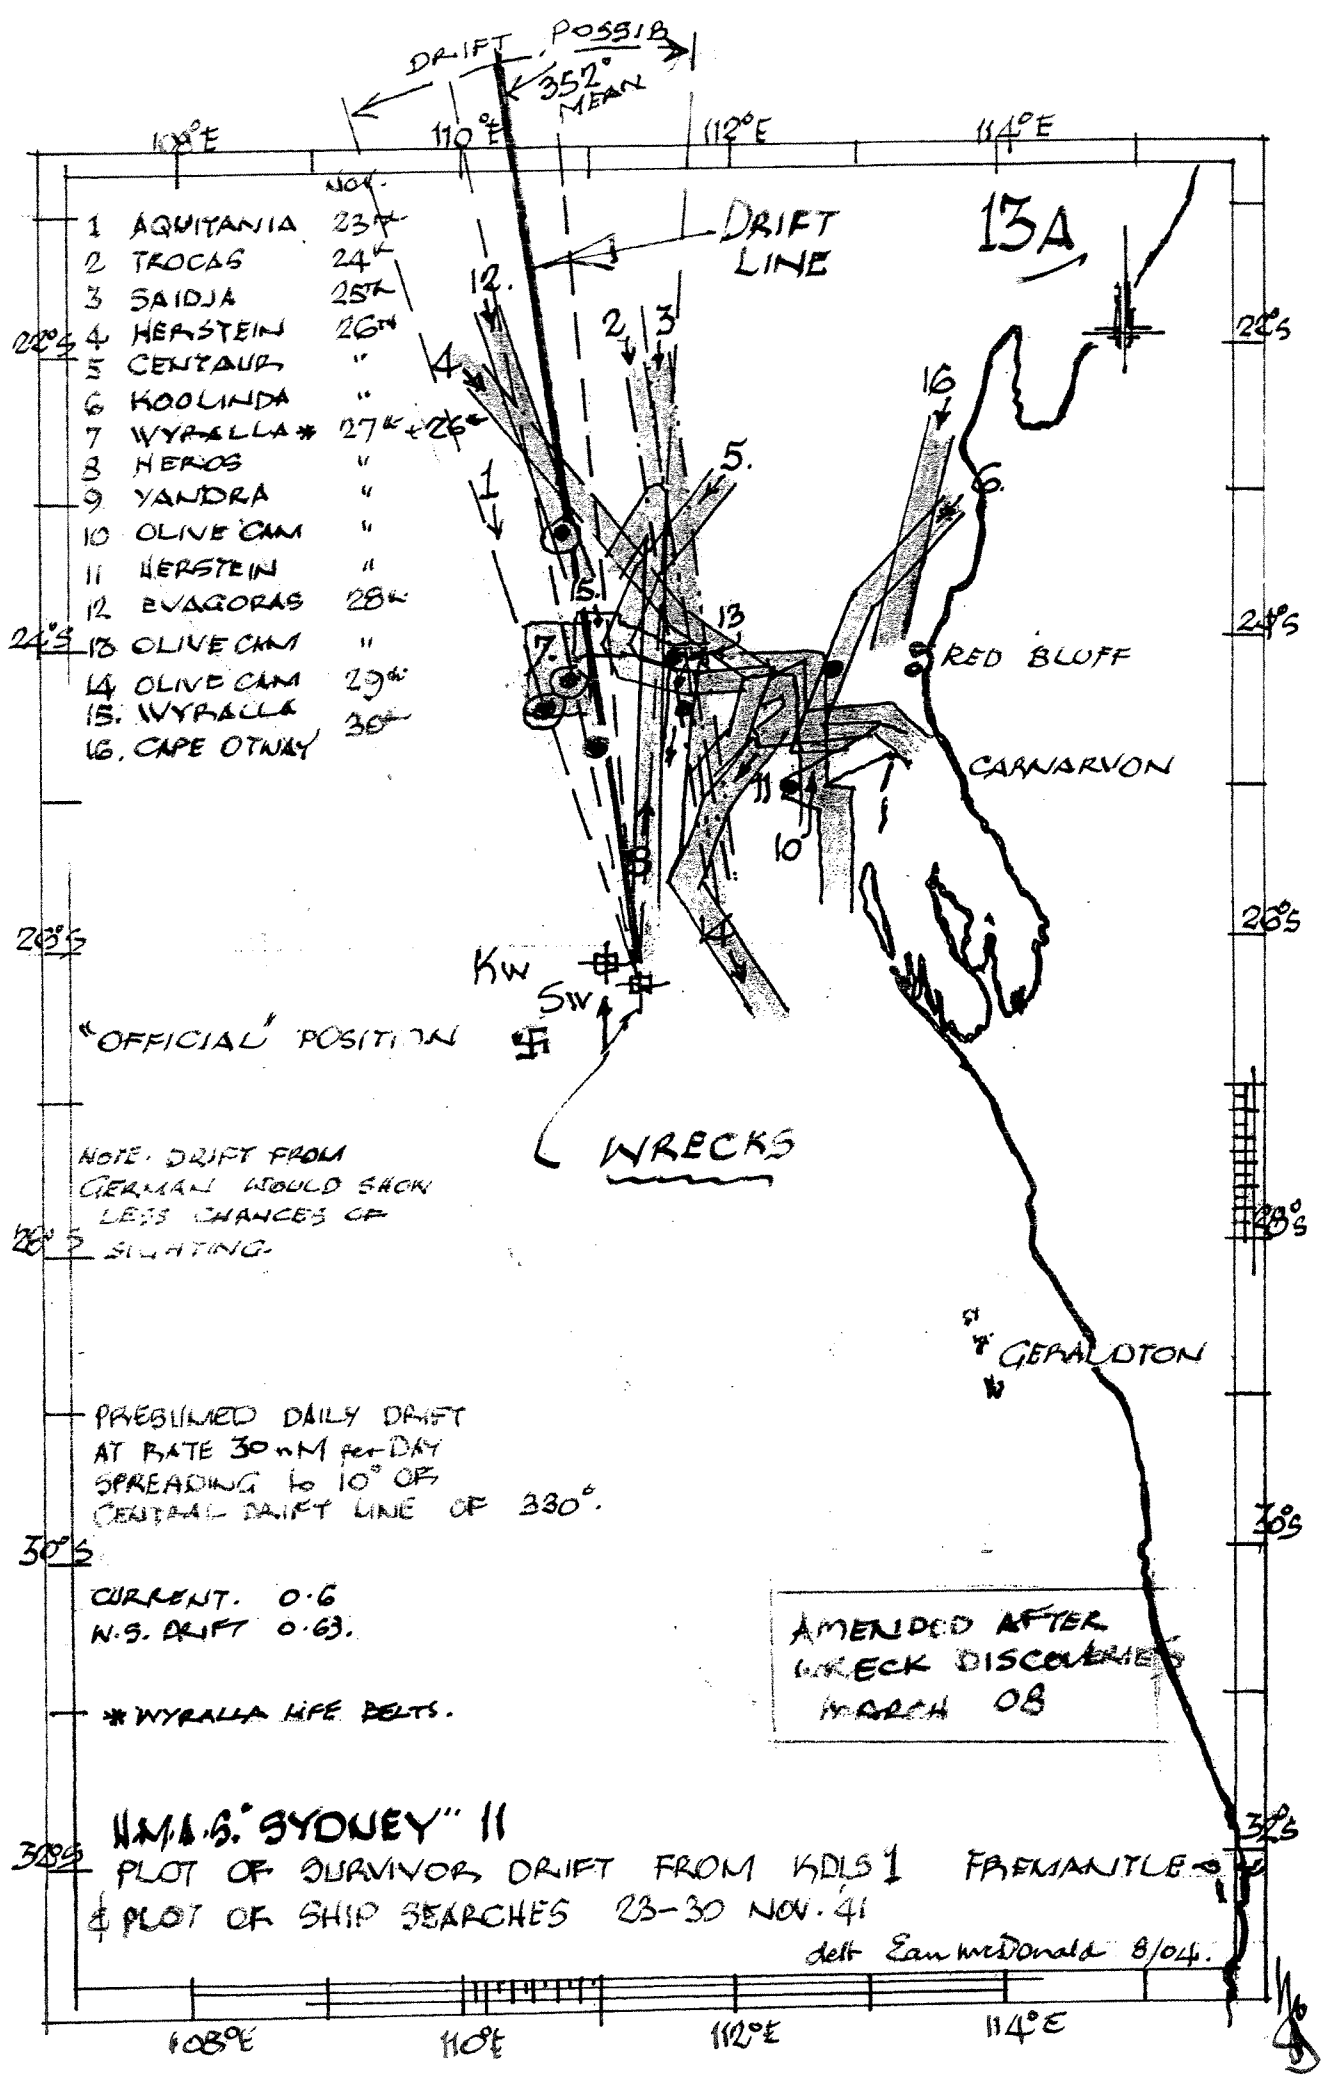 DRIFT POSSIB
352°
MEAN
108°E 110°E 112°E 114°E
NOV.
1 AQUITANIA 23RD
2 TROCAS 24th
3 SAIDJA 25TH
4 HERSTEIN 26TH
5 CENTAUR "
6 KOOLINDA "
7 WYRALLA * 27th + 26th
8 HEROS "
9 YANDRA "
10 OLIVE CAM "
11 HERSTEIN "
12 EVAGORAS 28th
13 OLIVE CAM "
14 OLIVE CAM 29th
15. WYRALLA
16. CAPE OTWAY 30th
DRIFT
LINE
13A
22°S
22°S
12.
2
3
4
16
1
5.
6.
15.
24°S
24°S
7.
13
RED BLUFF
CARNARVON
11
10
8
14
26°S
26°S
KW
SW
"OFFICIAL" POSITION
WRECKS
NOTE. DRIFT FROM
GERMAN WOULD SHOW
LESS CHANCES OF
SIGHTING.
28°S
28°S
GERALDTON
PRESUMED DAILY DRIFT
AT RATE 30 nM per DAY
SPREADING to 10° OF
CENTRAL DRIFT LINE OF 330°.
30°S
30°S
CURRENT. 0.6
W.S. DRIFT 0.63.
AMENDED AFTER
WRECK DISCOVERIES
MARCH 08
* WYRALLA LIFE BELTS.
H.M.A.S. "SYDNEY" II
32°S
32°S
PLOT OF SURVIVOR DRIFT FROM KDLS 1 FREMANTLE
& PLOT OF SHIP SEARCHES 23-30 NOV. '41
delt Ean McDonald 8/04.
108°E 110°E 112°E 114°E